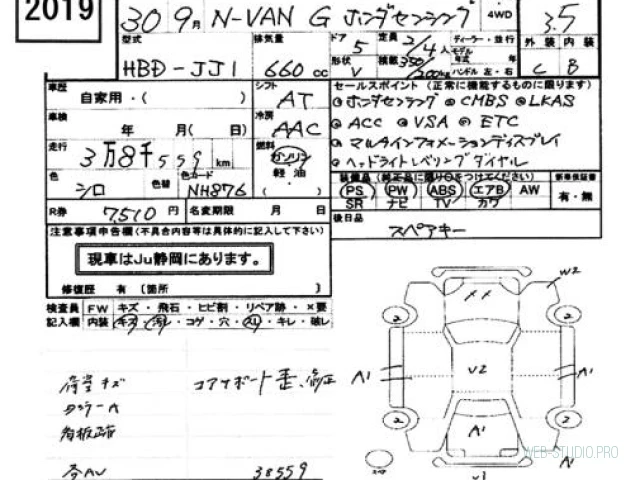 2019
30 9月 N-VAN G ホンダセンシング 4WD 3.5
型式 HBD-JJ1 排気量 660 cc ドア 5 形状 V 定員 2/4人 積載 350/200kg ディーラー・並行 モデル年式 年 ハンドル 左・右 外装 C 内装 B
車歴 自家用・( ) シフト AT
車検 年 月( 日) 冷房 AAC
走行 3万8千559 km 燃料 ガソリン 軽油 ( )
色 シロ 色替 色カード NH876
R券 7,510円 名変期限 月 日
セールスポイント (正常に機能するものに限ります)
◎ホンダセンシング ◎CMBS ◎LKAS
◎ACC ◎VSA ◎ETC
◎マルチインフォメーションディスプレイ
◎ヘッドライトレベリングダイヤル
装備品 (純正品に限り○をつけてください) 新車保証書
PS PW ABS エアB AW 有・無
SR ナビ TV カワ
後日品 スペアキー
注意事項申告欄(不具合内容等は具体的に記入して下さい)
現車はJu静岡にあります。
修復歴 有 〔箇所 〕
検査員記入欄 FW キズ・飛石・ヒビ割・リペア跡・×要
内装 キズ・汚レ・コゲ・穴・スレ・キレ・破レ
荷室キズ
コアサポート歪、修正
看板跡
38559
W2
××
2
2
A1
V2
A1
2
2
A1
スペア
V1
A1
WEB-STUDIO.PRO